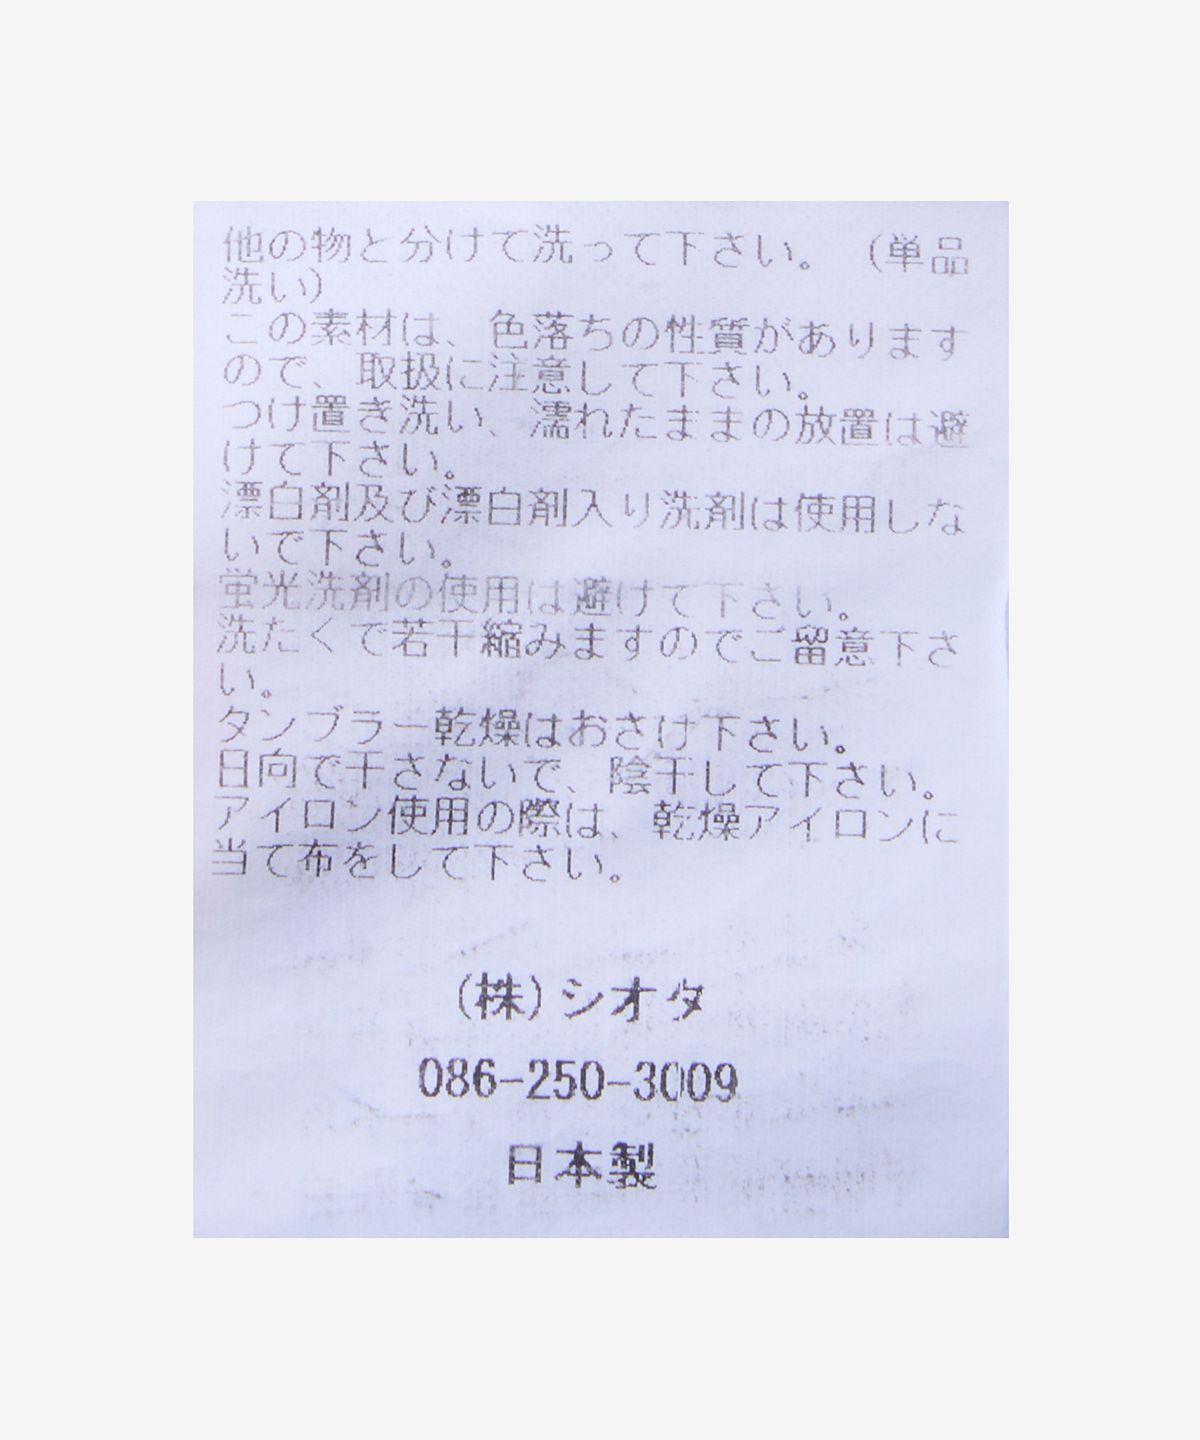 他の物と分けて洗って下さい。（単品
洗い）
この素材は、色落ちの性質があります
ので、取扱に注意して下さい。
つけ置き洗い、濡れたままの放置は避
けて下さい。
漂白剤及び漂白剤入り洗剤は使用しな
いで下さい。
蛍光洗剤の使用は避けて下さい。
洗たくで若干縮みますのでご留意下さ
い。
タンブラー乾燥はおさけ下さい。
日向で干さないで、陰干して下さい。
アイロン使用の際は、乾燥アイロンに
当て布をして下さい。
（株）シオタ
086-250-3009
日本製